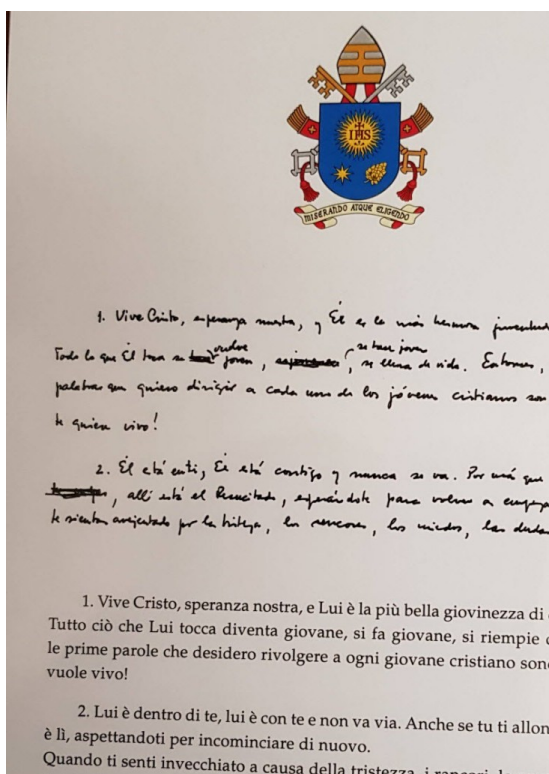 IHS
MISERANDO ATQUE ELIGENDO
1. Vive Cristo, esperanza nuestra, y Él es la más hermosa juventud
Todo lo que Él toca se vuelve joven, se hace joven, se llena de vida. Entonces,
palabras que quiero dirigir a cada uno de los jóvenes cristianos son
te quiere vivo!
2. Él está en ti, Él está contigo y nunca se va. Por más que
allí está el Resucitado, esperándote para volver a empezar
te sientas avejentado por la tristeza, los rencores, los miedos, las dudas
1. Vive Cristo, speranza nostra, e Lui è la più bella giovinezza di
Tutto ciò che Lui tocca diventa giovane, si fa giovane, si riempie
le prime parole che desidero rivolgere a ogni giovane cristiano sono
vuole vivo!
2. Lui è dentro di te, lui è con te e non va via. Anche se tu ti allon
è lì, aspettandoti per incominciare di nuovo.
Quando ti senti invecchiato a causa della tristezza, i rancori,